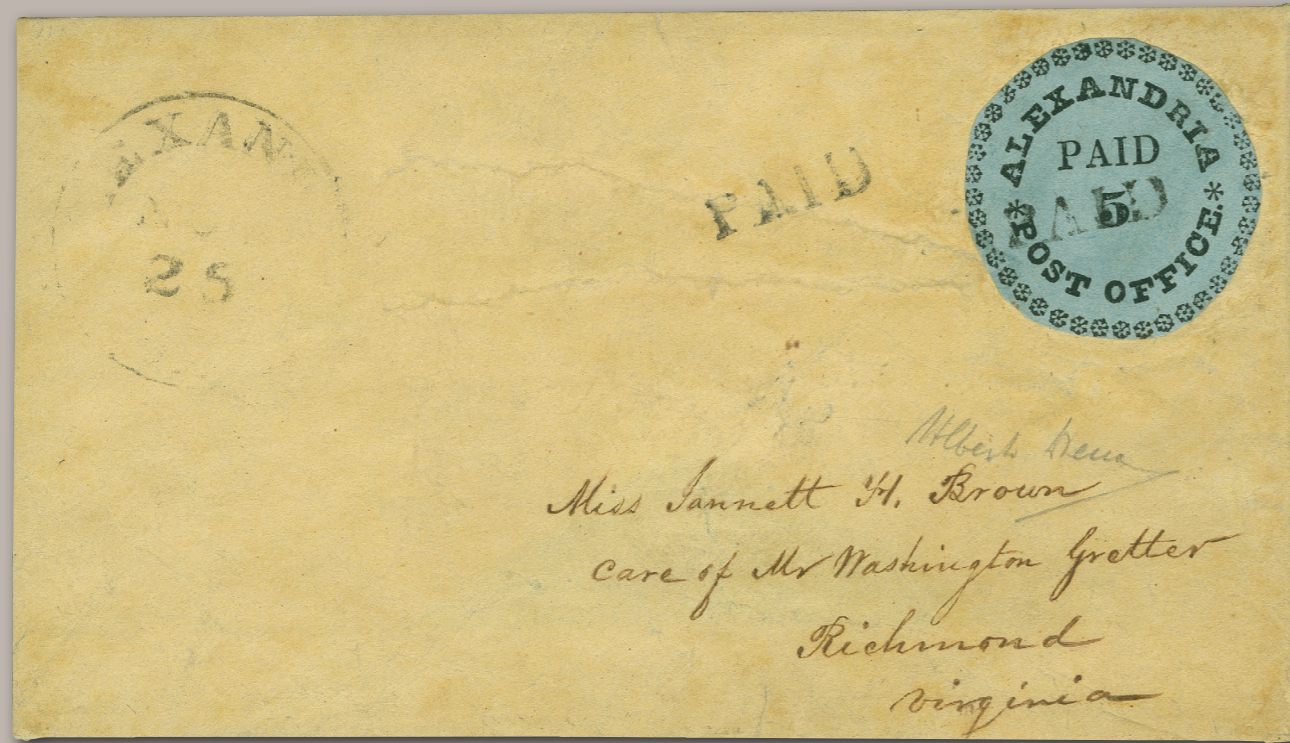 EXAN
25
PAID
* ALEXANDRIA *
PAID
5.
PAID
POST OFFICE.
Miss Jannett H. Brown
care of Mr Washington Gretter
Richmond
virginia